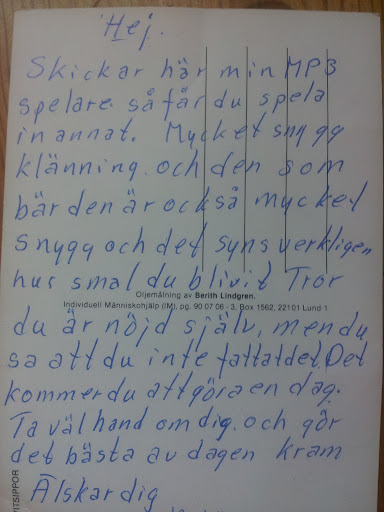 Hej.
Skickar här min MP3
spelare så får du spela
in annat. Mycket snygg
klänning och den som
bär den är också mycket
snygg och det syns verkligen
hur smal du blivit Tror
Oljemålning av Berith Lindgren.
Individuell Människohjälp (IM), pg. 90 07 06 - 3, Box 1562, 22101 Lund 1
du är nöjd själv, men du
sa att du inte fattat det. Det
kommer du att göra en dag.
Ta väl hand om dig och gör
det bästa av dagen kram
Älskar dig
VITSIPPOR